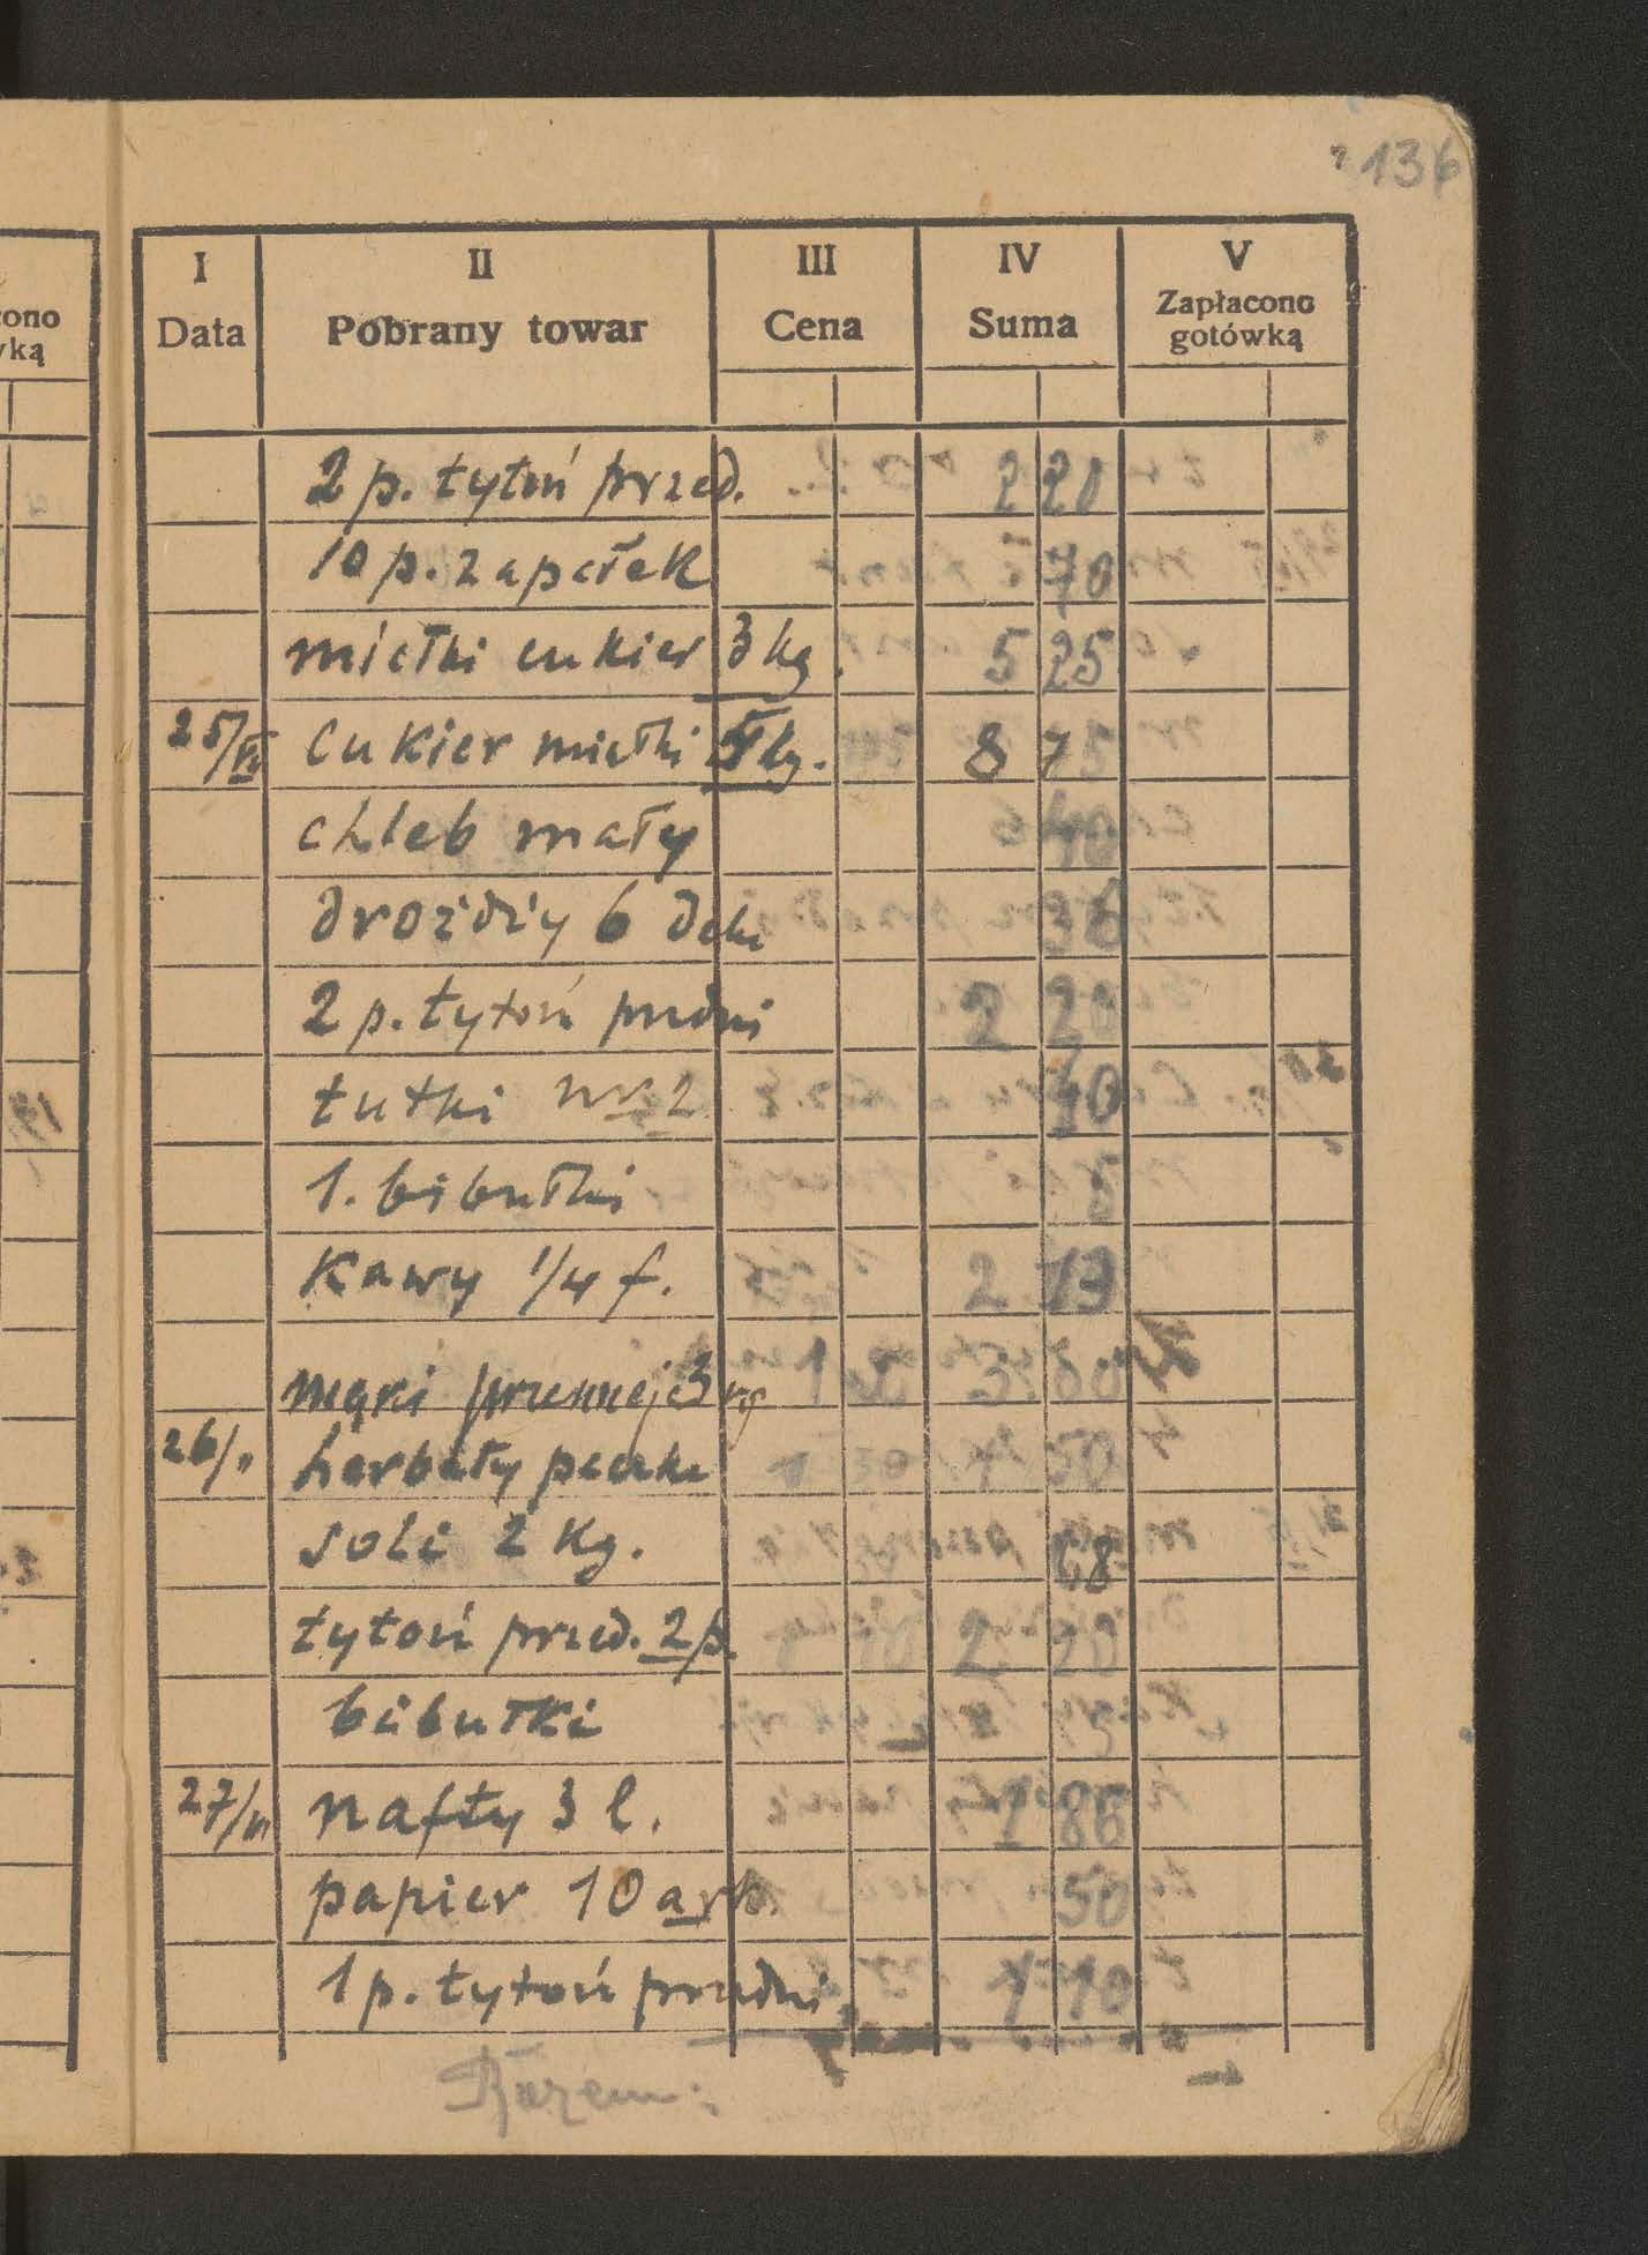 136
cono
wką
I II III IV V
Data Pobrany towar Cena Suma Zapłacono
gotówką
2 p. tytoń przed. 2 20
10 p. zapałek 70
miałki cukier 3 kg. 5 25
25/VI cukier miałki 5 kg. 8 75
chleb mały 40
drożdży 6 deka 36
2 p. tytoń przedni 2 20
tutki nr 2 40
1. bibułki
Kawy 1/4 f. 2 13
mąki pszennej 3 kg 1 3 60
26/" herbaty paczka 1 30 1 30
soli 2 Kg. 68
tytoń przed. 2 p. 2 20
bibułki
27/VI nafty 3 l. 1 86
papier 10 ark. 50
1 p. tytoń przedni 1 10
Razem: